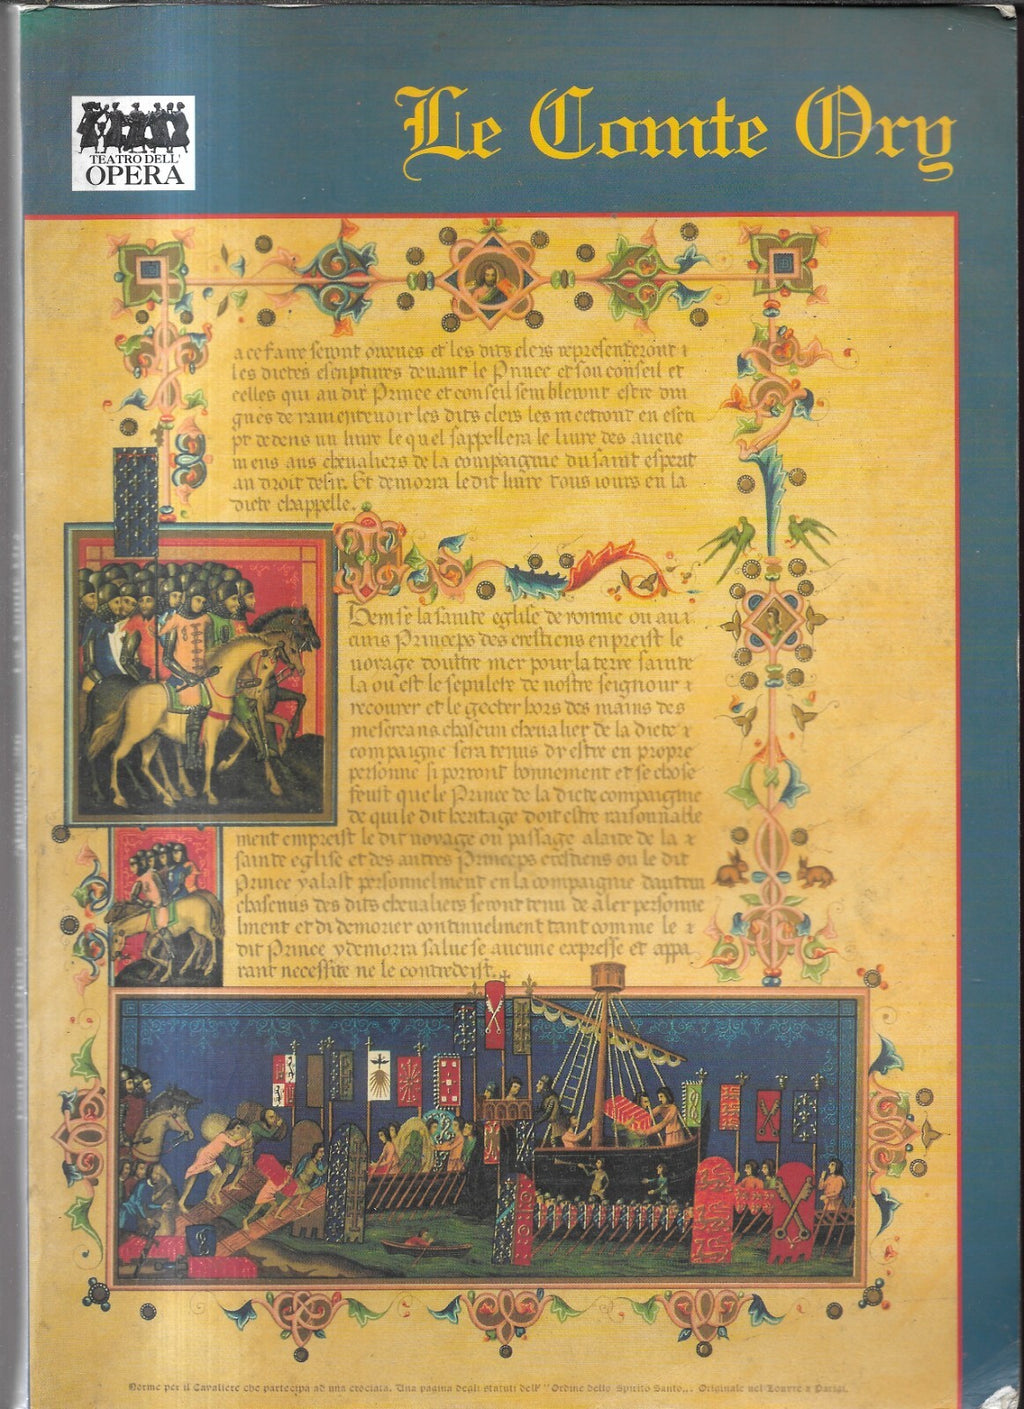 TEATRO DELL'
OPERA
Le Comte Ory
a ce faire seront ordenes et les dits clers representeront
les dictes escriptures devant le Prince et son conseil et
celles qui au dit Prince et conseil sembleront estre din
gnes de ramentevoir les dits clers les mectront en escri
pt dedens un livre le quel s'appellera le livre des avene
mens aus chevaliers de la compaignie du saint esperit
au droit desir. Et demorra le dit livre tous iours en la
dicte chappelle.
se la sainte eglise de romme ou au
cuns Princeps des crestiens enpreist le
voyage doultre mer pour la terre sainte
la ou est le sepulcre de nostre seignour
recovrer et le gecter hors des mains des
mescreans chascun chevalier de la dicte
compaignie sera tenus dy estre en propre
personne si porront bonnement et se chose
feust que le Prince de la dicte compaignie
de qui le dit heritage doit estre raisonnable
ment empreist le dit voyage ou passage a laide de la
sainte eglise et des autres Princeps crestiens ou le dit
Prince y alast personnelment en la compaignie dautrui
chascuns des dits chevaliers seront tenu de aler personne
lment et di demorer continuelment tant comme le
dit Prince y demorra sal ve se aucune expresse et appa
rant necessite ne le contredeist.
Norme per il Cavaliere che partecipa ad una crociata. Una pagina degli statuti dell' "Ordine dello Spirito Santo,,. Originale nel Louvre a Parigi.